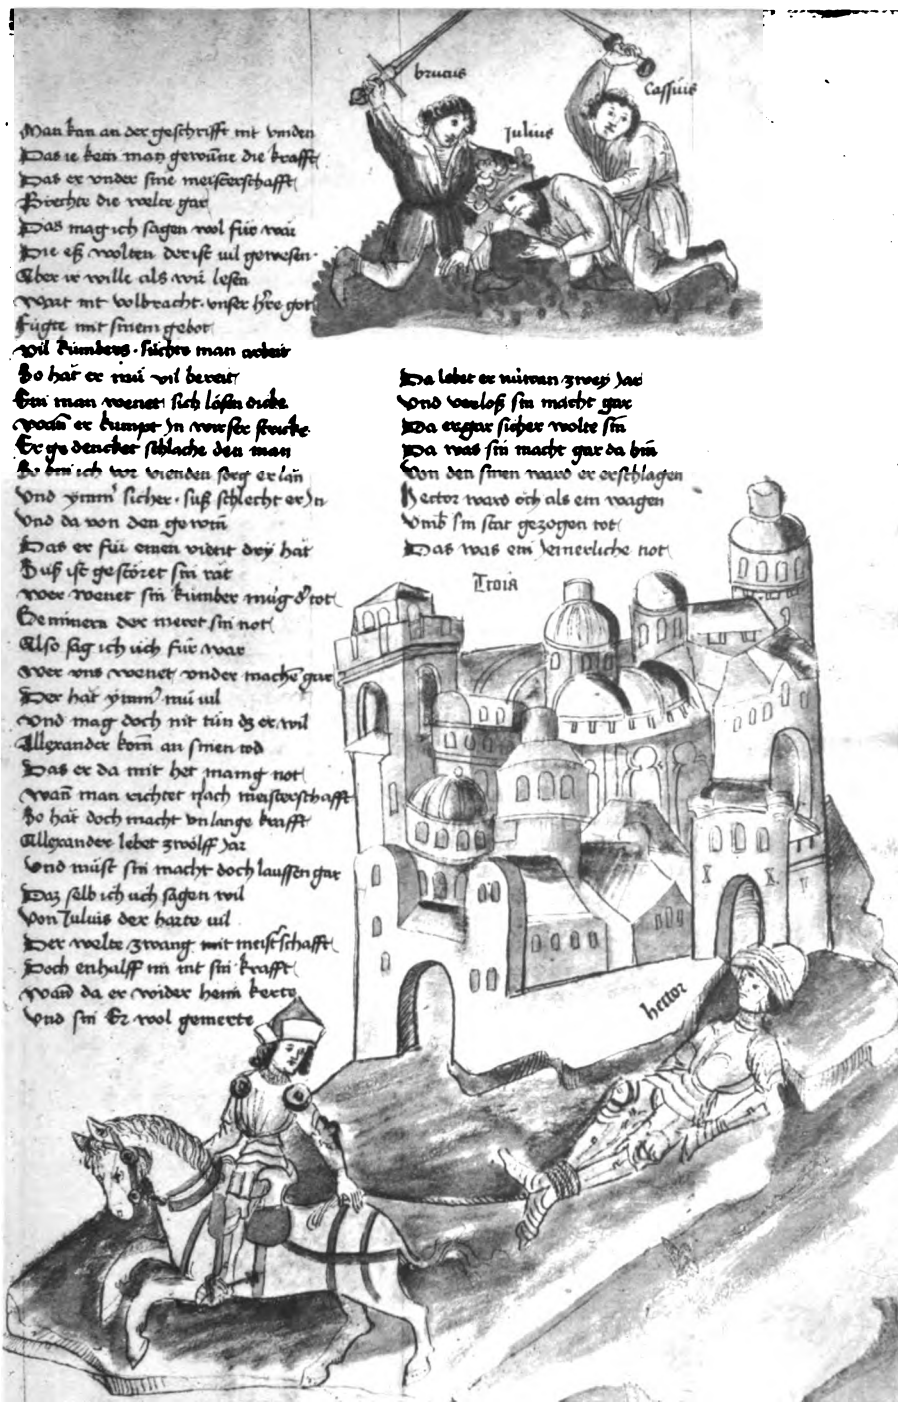 brutus
Cassius
Julius
Man kan an der geschrifft nit vinden
Das ie kein man gewūne die krafft
Das er vnder sine meisterschafft
Brechte die welte gar
Das mag ich sagen wol für war
Die eß wolten der ist uil gewesen
Aber ir wille als wir lesen
wart nit volbracht vnser h're got
Fügte mit sinem gebot
vil kumbers suchte man arbeit
So hat er mü vil bereit
Ein man wenet sich lösen dicke
wan̄ er kumpt Jn wirser stricke
Er gedencket schlache den man
So bin ich vor vienden sorg er lān
Vnd ÿmm' sicher suß schlecht er Jn
Vnd da von den gewin̄
Das er für einen vient drÿ hat
Suß ist gestöret sin rāt
wer wenet sin kumber müg d' tot
Geminern der meret sin not
Also sag ich üch für war
wer vns wenet vnder machē gar
Der hat ÿmm' mü uil
Vnd mag doch nit tün dz er wil
Allexander kom̄ an sinen tod
Das er da mit het manig not
wan̄ man richtet nach meisterschafft
So hat doch macht vnlange krafft
Allexander lebet zwölff Jar
Vnd müst sin macht doch laussen gar
Daz selb ich üch sagen wil
Von Juluis der harte uil
Der welte zwang mit meist'schafft
Doch enhalff in nit sin krafft
wan̄ da er wider heim kerte
Vnd sin Er wol gemerte
Da lebet er nüwan zweÿ Jar
Vnd verloß sin macht gar
Da er gar sicher wolte sin
Da was sin macht gar da hin
Von den sinen ward er erschlagen
Hector ward och als ein wagen
Vmb sin stat gezogen tot
Das was ein Jemerliche not
Troia
hector